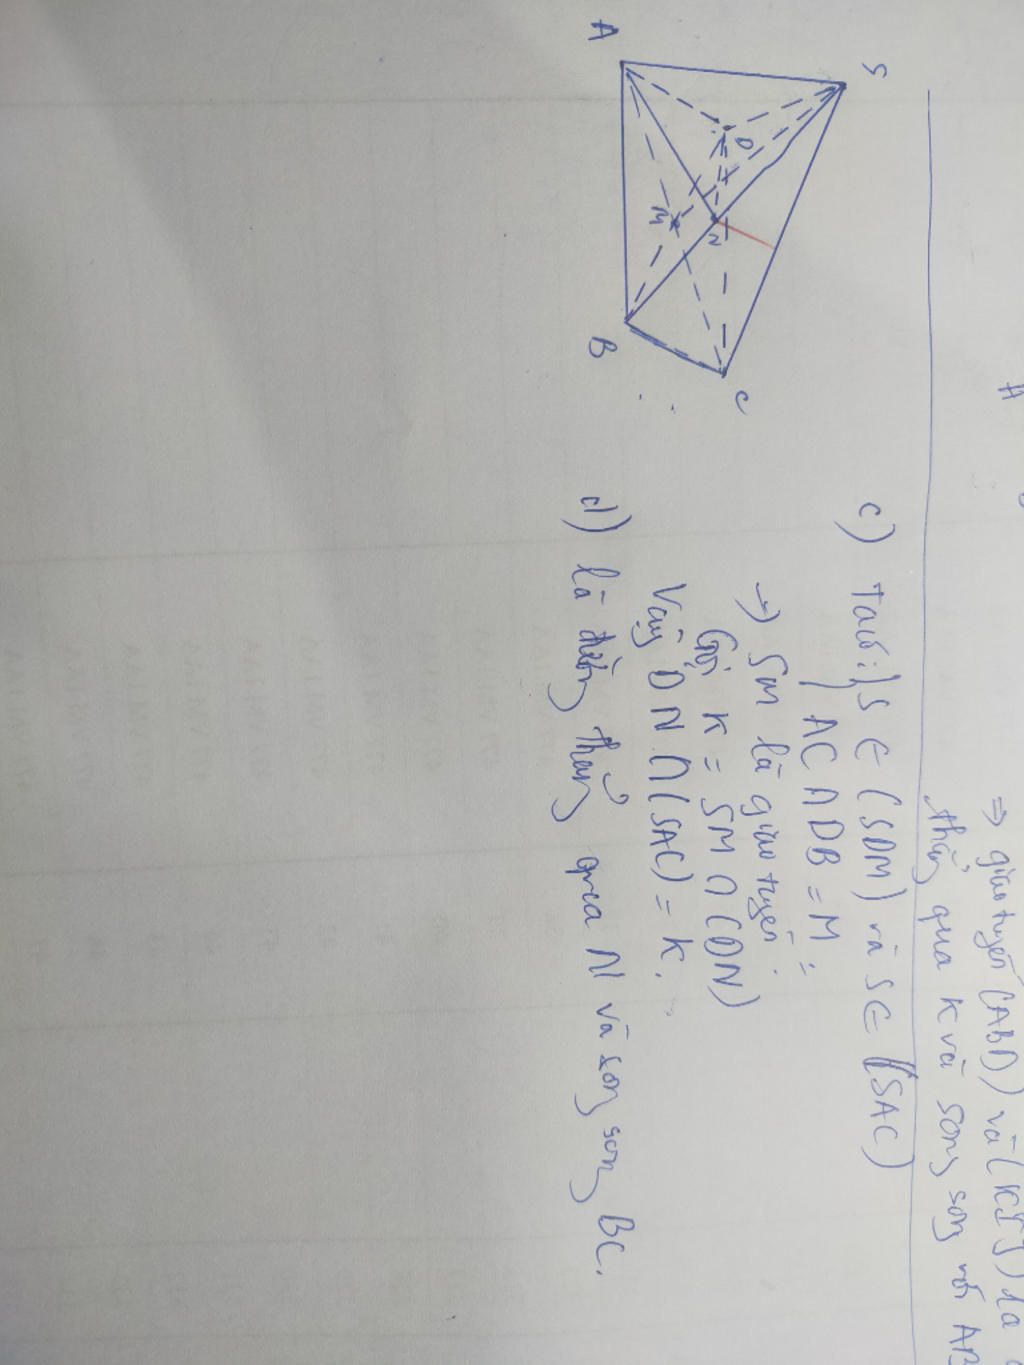 A
⇒ giao tuyến (ABD) và (KIJ) là
thẳng qua K và song song với AB
S
A
D
M
N
B
C
c) Ta có: { S ∈ (SDM) và S ∈ (SAC)
AC ∩ DB = M
→ SM là giao tuyến.
Gọi K = SM ∩ (DN)
Vậy DN ∩ (SAC) = K.
d) là đường thẳng qua N và song song BC.